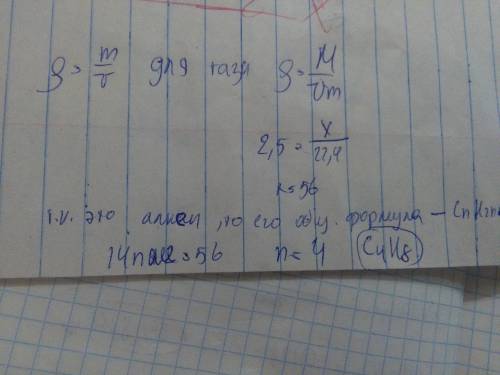 ρ = m/v для газа ρ = M/Vm
2,5 = x/22,4
x = 56
т.к. это алкен, то его общ. формула – CnH2n
14n = 56 n = 4 C4H8